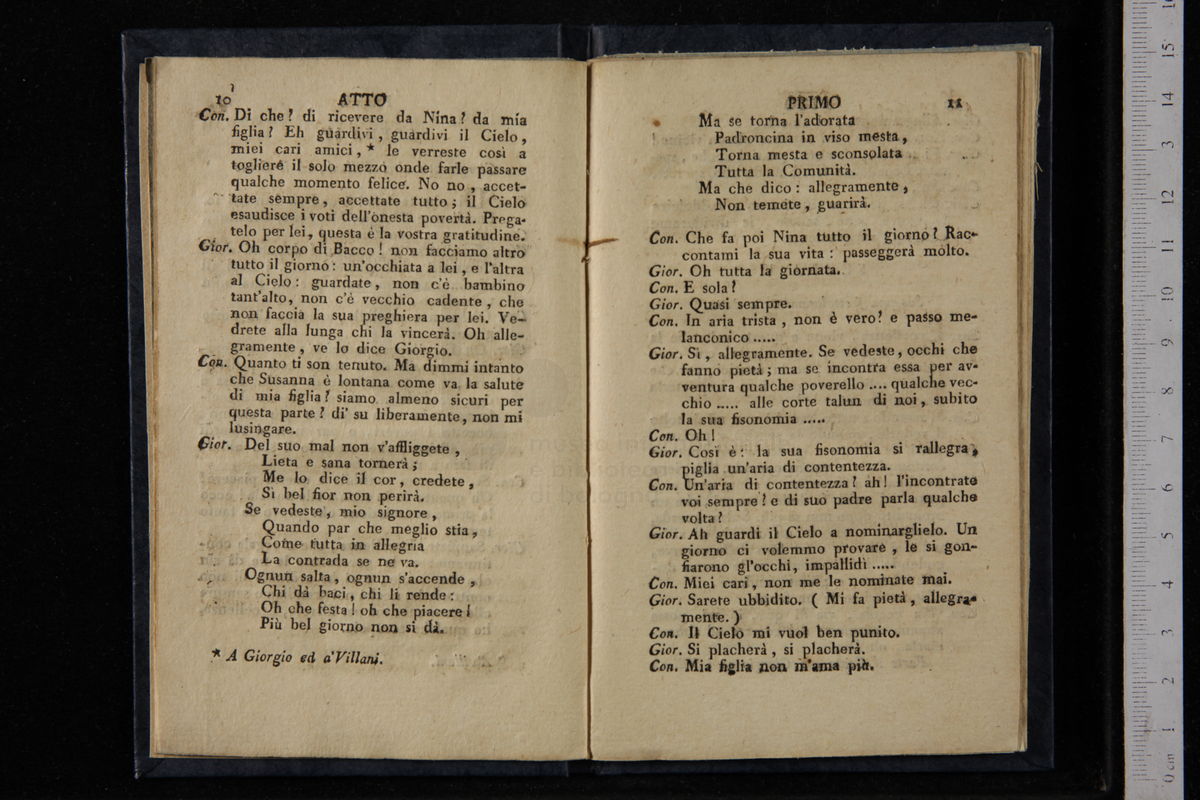 10 ATTO
Con. Di che? di ricevere da Nina? da mia
figlia? Eh guardivi, guardivi il Cielo,
miei cari amici, * le verreste così a
togliere il solo mezzo onde farle passare
qualche momento felice. No no, accet-
tate sempre, accettate tutto; il Cielo
esaudisce i voti dell'onesta povertà. Prega-
telo per lei, questa è la vostra gratitudine.
Gior. Oh corpo di Bacco! non facciamo altro
tutto il giorno: un'occhiata a lei, e l'altra
al Cielo: guardate, non c'è bambino
tant'alto, non c'è vecchio cadente, che
non faccia la sua preghiera per lei. Ve-
drete alla lunga chi la vincerà. Oh alle-
gramente, ve lo dice Giorgio.
Con. Quanto ti son tenuto. Ma dimmi intanto
che Susanna è lontana come va la salute
di mia figlia? siamo almeno sicuri per
questa parte? di' su liberamente, non mi
lusingare.
Gior. Del suo mal non v'affliggete,
Lieta e sana tornerà;
Me lo dice il cor, credete,
Sì bel fior non perirà.
Se vedeste, mio signore,
Quando par che meglio stia,
Come tutta in allegria
La contrada se ne va.
Ognun salta, ognun s'accende,
Chi dà baci, chi li rende:
Oh che festa! oh che piacere!
Più bel giorno non si dà.
* A Giorgio ed a'Villani.
PRIMO 11
Ma se torna l'adorata
Padroncina in viso mesta,
Torna mesta e sconsolata
Tutta la Comunità.
Ma che dico: allegramente,
Non temete, guarirà.
Con. Che fa poi Nina tutto il giorno? Rac-
contami la sua vita: passeggerà molto.
Gior. Oh tutta la giornata.
Con. E sola?
Gior. Quasi sempre.
Con. In aria trista, non è vero? e passo me-
lanconico .....
Gior. Sì, allegramente. Se vedeste, occhi che
fanno pietà; ma se incontra essa per av-
ventura qualche poverello .... qualche vec-
chio ..... alle corte talun di noi, subito
la sua fisonomia .....
Con. Oh!
Gior. Così è: la sua fisonomia si rallegra,
piglia un'aria di contentezza.
Con. Un'aria di contentezza? ah! l'incontrate
voi sempre? e di suo padre parla qualche
volta?
Gior. Ah guardi il Cielo a nominarglielo. Un
giorno ci volemmo provare, le si gon-
fiarono gl'occhi, impallidì .....
Con. Miei cari, non me le nominate mai.
Gior. Sarete ubbidito. ( Mi fa pietà, allegra-
mente. )
Con. Il Cielo mi vuol ben punito.
Gior. Si placherà, si placherà.
Con. Mia figlia non m'ama più.
0 cm 1 2 3 4 5 6 7 8 9 10 11 12 13 14 15